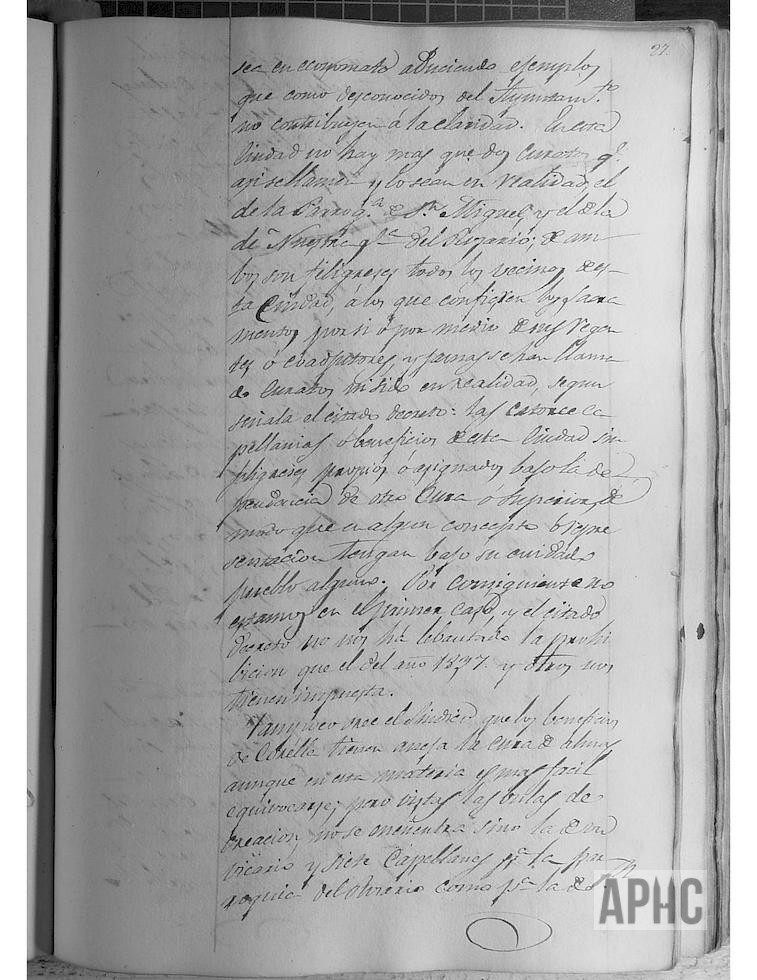 27.
sea en economato aduciendo ejemplos
que como desconocidos del Ayuntam.to
no contribuyen á la claridad. En esta
Ciudad no hay mas que dos Curatos q.e
asi se llamen y lo sean en realidad, el
de la Parroq.a de S.n Miguel, y el de la
de Nuestra S.ra del Rosario; de am-
bos son feligreses todos los vecinos de es-
ta Ciudad, á los que confieren los sacra
mentos por si ó por medio de sus regen
tes ó coadjutores, y jamas se han llama
do Curatos ni sido en realidad, segun
señala el citado decreto: las catorce ca
pellanias ó beneficios de esta Ciudad sin
feligreses propios ó asignados bajo la de
pendencia de otro Cura o Superior, de
modo que en algun concepto ó repre
sentacion tengan bajo su cuidado
pueblo alguno. Por consiguiente no
estamos en el primer caso, y el citado
decreto no nos ha lebantado la prohi
bicion que el del año 1837 y otros nos
tienen impuesta.
Tampoco cree el Sindico que los beneficios
de Corella tienen aneja la cura de almas
aunque en esta materia es mas facil
equivocarse; pero vistas las bulas de
creacion, no se encuentra sino la de un
vicario y siete Capellanes p.a la par
roquia del Rosario como p.a la de S.n
APHC